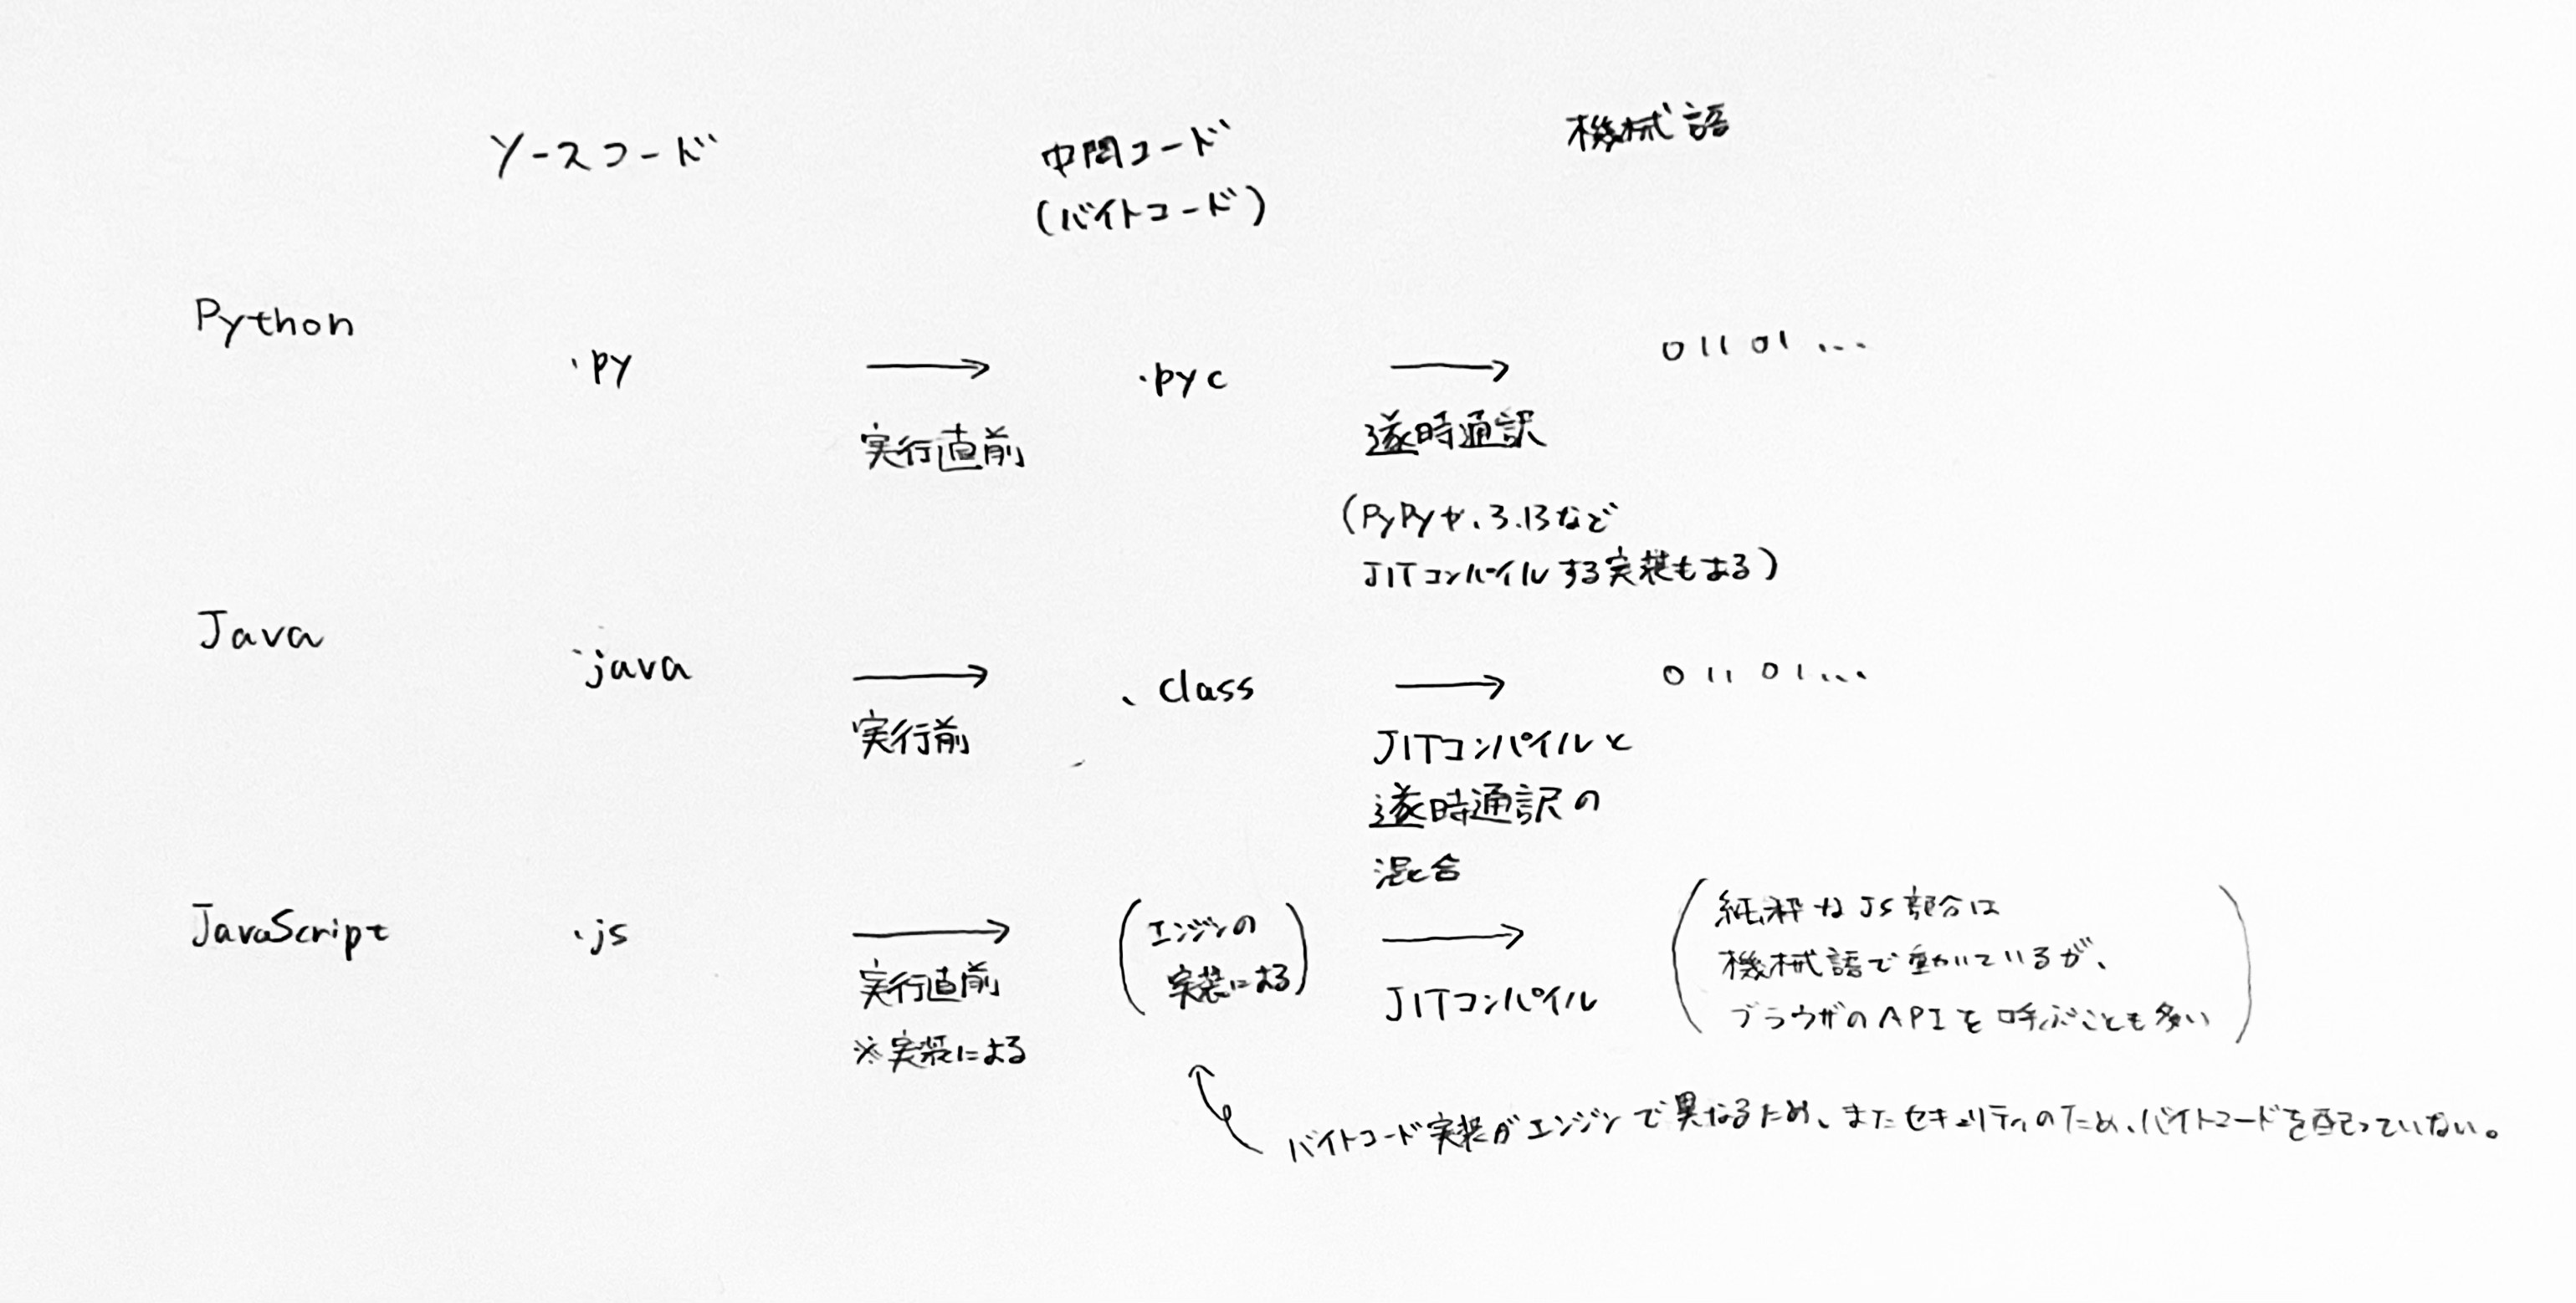 ソースコード
中間コード
(バイトコード)
機械語
Python
.py
→
実行直前
.pyc
→
逐時通訳
(PyPyや、3.13など
JITコンパイルする実装もある)
01101...
Java
.java
→
実行前
.class
→
JITコンパイルと
逐時通訳の
混合
01101...
JavaScript
.js
→
実行直前
※実装による
(エンジンの
実装による)
→
JITコンパイル
(純粋なJS部分は
機械語で動いているが、
ブラウザのAPIを呼ぶことも多い)
バイトコード実装がエンジンで異なるため、またセキュリティのため、バイトコードを配っていない。